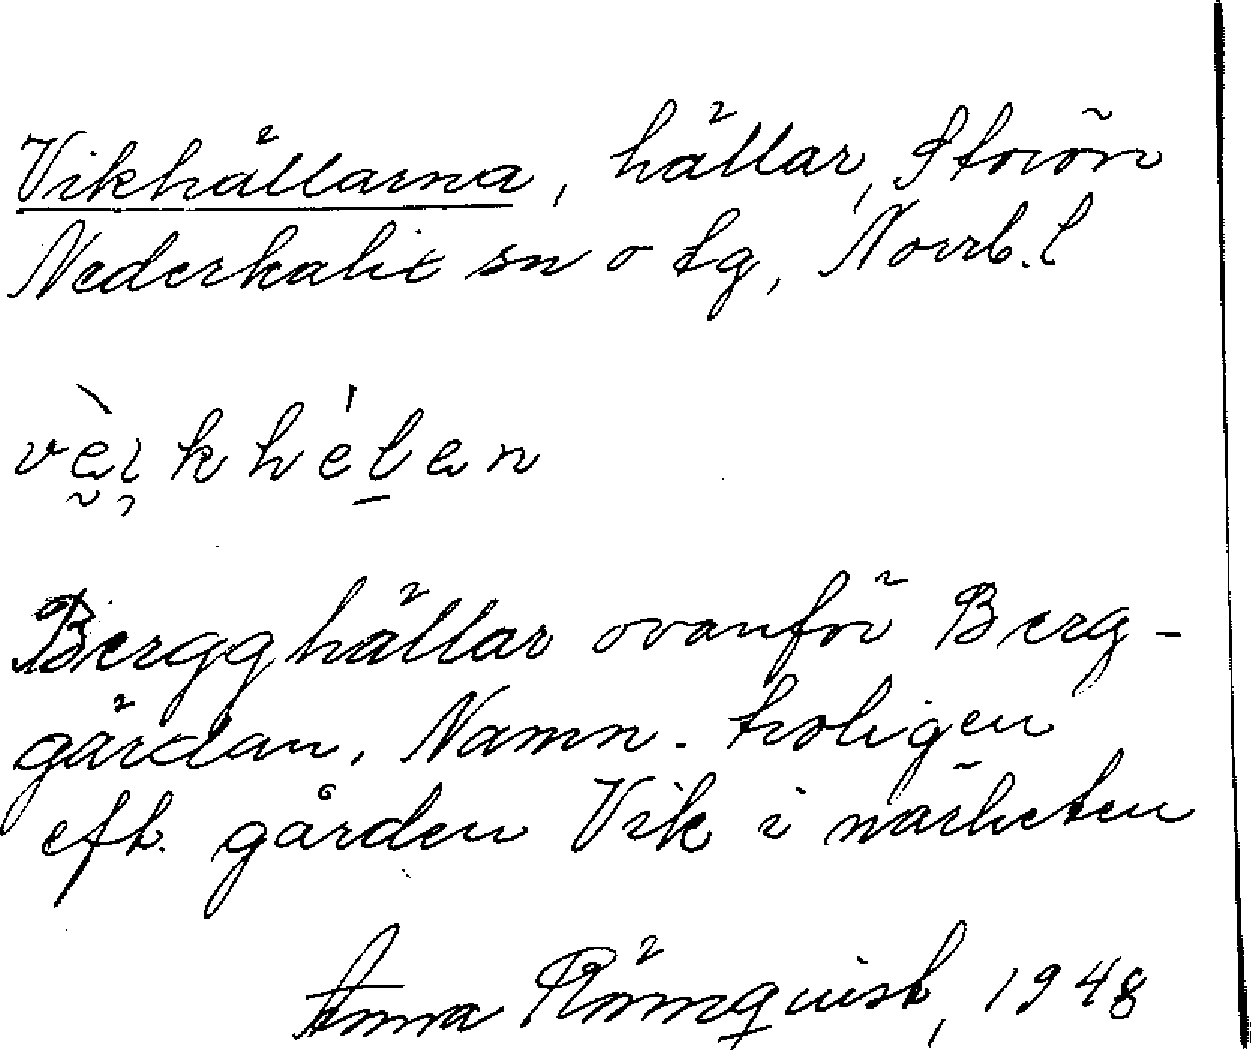 Vikhällarna, hällar, Storön
Nederkalix sn o tg, Norrb. l
Bergghällar ovanför Berg-
gårdan. Namn. troligen
eft. gården Vik i närheten
Anna 1948